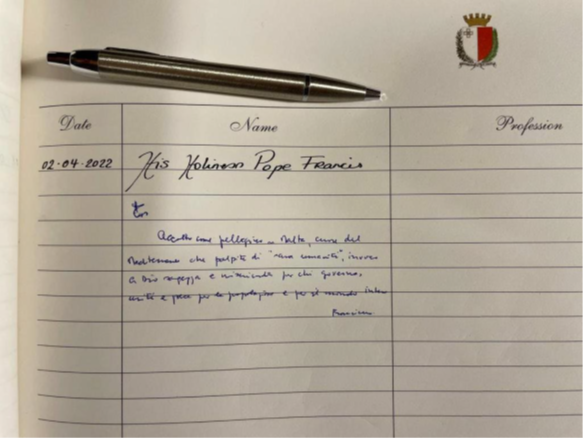 Date Name Profession
02-04-2022 His Holiness Pope Francis
Accolto come pellegrino Malta, cuore del
Mediterraneo che palpita di "rara umanità",
a Dio saggezza e per chi governa,
e pace per la popolazione e per mondo